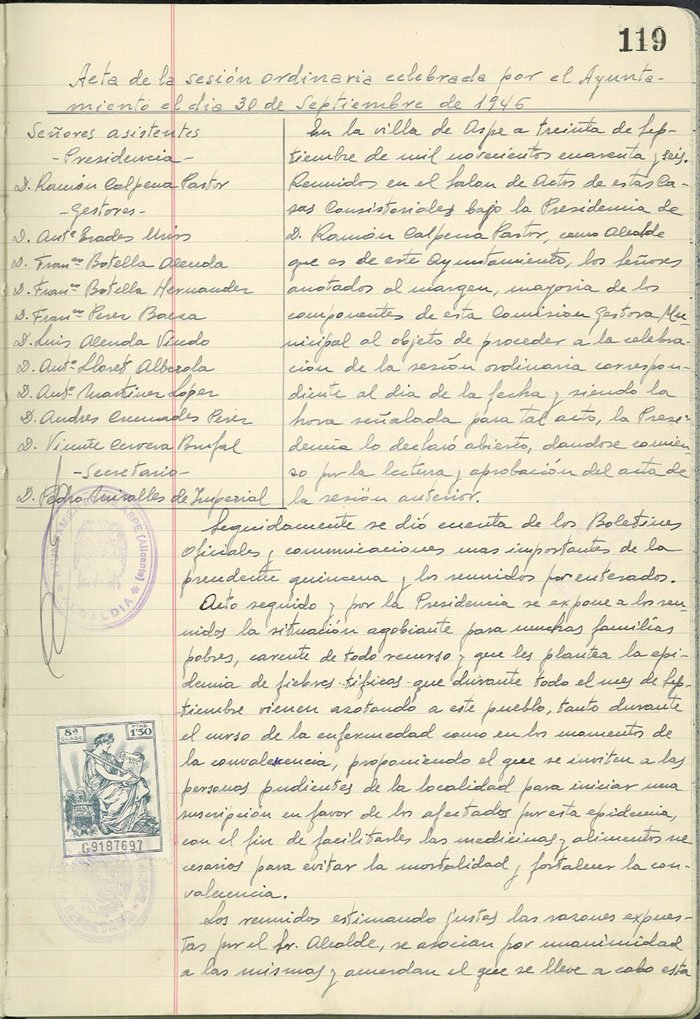 119
Acta de la sesión ordinaria celebrada por el Ayunta-
miento el dia 30 de Septiembre de 1946
Señores asistentes
-Presidencia-
D. Ramón Calpena Pastor
-Gestores-
D. Antº Erades Miris
D. Franco Botella Alenda
D. Franco Botella Hernandez
D. Franco Perez Baeza
D. Luis Alenda
D. Antº Lloret Alberola
D. Antº Martinez López
D. Andres Cremades Perez
D. Vicente Cervera
-Secretario-
D. Pedro Miralles de Imperial
En la villa de Aspe a treinta de sep-
tiembre de mil novecientos cuarenta y seis.
Reunidos en el Salon de Actos de estas Ca-
sas Consistoriales bajo la Presidencia de
D. Ramón Calpena Pastor, como Alcalde
que es de este Ayuntamiento, los señores
anotados al margen, mayoria de los
componentes de esta Comision Gestora Mu-
nicipal al objeto de proceder a la celebra-
ción de la sesión ordinaria correspon-
diente al dia de la fecha y siendo la
hora señalada para tal acto, la Presi-
dencia lo declaró abierto, dandose comien-
zo por la lectura y aprobación del acta de
la sesión anterior.
Seguidamente se dió cuenta de los Boletines
Oficiales y comunicaciones mas importantes de la
precedente quincena y los reunidos por enterados.
Acto seguido y por la Presidencia se expone a los reu-
nidos la situación agobiante para muchas familias
pobres, carente de todo recurso y que les plantea la epi-
demia de fiebres tificas que durante todo el mes de sep-
tiembre vienen azotando a este pueblo, tanto durante
el curso de la enfermedad como en los momentos de
la convalecencia, proponiendo el que se inviten a las
personas pudientes de la localidad para iniciar una
suscripción en favor de los afectados por esta epidemia,
con el fin de facilitarles las medicinas y alimentos ne
cesarios para evitar la mortalidad y fortalecer la con-
valecencia.
Los reunidos estimando justas las razones expues-
tas por el Sr. Alcalde, se asocian por unanimidad
a las mismas y acuerdan el que se lleve a cabo esta
ASPE (Alicante)
ALCALDIA
8ª CLASE
PTAS 1'50
G9187697